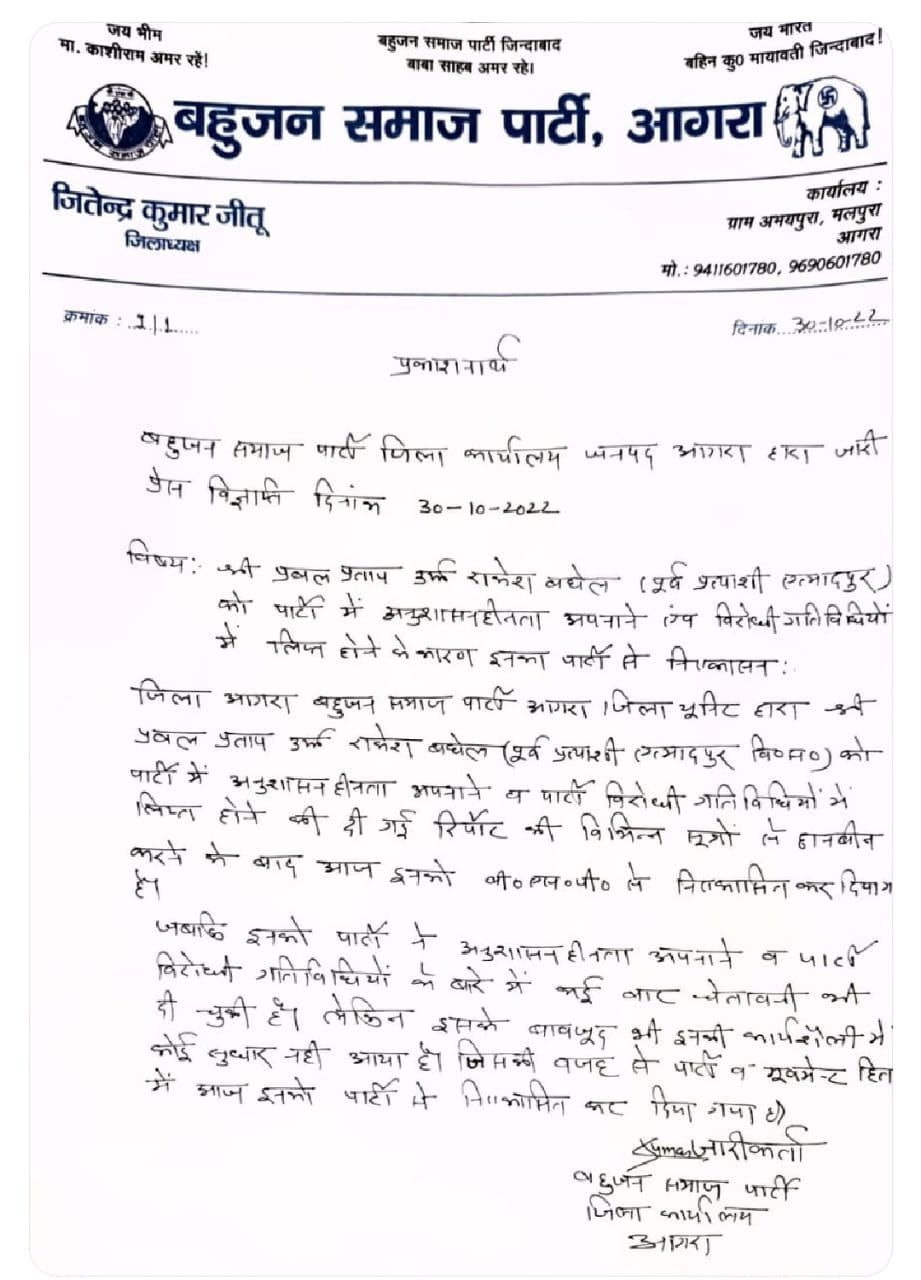 जय भीम
मा. काशीराम अमर रहें!
बहुजन समाज पार्टी जिन्दाबाद
बाबा साहब अमर रहे।
जय भारत
बहिन कु0 मायावती जिन्दाबाद!
बहुजन समाज पार्टी, आगरा
जितेन्द्र कुमार जीतू
जिलाध्यक्ष
कार्यालय :
ग्राम अभयपुरा, मलपुरा
आगरा
मो.: 9411601780, 9690601780
क्रमांक : 1/1
दिनांक 30-10-22
प्रकाशनार्थ
बहुजन समाज पार्टी जिला कार्यालय जनपद आगरा द्वारा जारी
प्रेस विज्ञप्ति दिनांक 30-10-2022
विषय: श्री प्रबल प्रताप उर्फ राकेश बघेल (पूर्व प्रत्याशी एत्मादपुर)
को पार्टी में अनुशासनहीनता अपनाने एंव विरोधी गतिविधियों
में लिप्त होने के कारण इनका पार्टी से निष्कासन:
जिला आगरा बहुजन समाज पार्टी आगरा जिला यूनिट द्वारा श्री
प्रबल प्रताप उर्फ राकेश बघेल (पूर्व प्रत्याशी एत्मादपुर वि०स०) को
पार्टी में अनुशासनहीनता अपनाने व पार्टी विरोधी गतिविधियों में
लिप्त होने की दी गई रिर्पोट की विभिन्न सूत्रों से छानबीन
करने के बाद आज इनको बी०एस०पी० से निष्कासित कर दिया ग
है।
जबकि इनको पार्टी में अनुशासनहीनता अपनाने व पार्टी
विरोधी गतिविधियों के बारे में कई बार चेतावनी भी
दी चुकी है। लेकिन इसके बावजूद भी इनकी कार्यशैली में
कोई सुधार नही आया है। जिसकी वजह से पार्टी व मूवमेन्ट हित
में आज इनको पार्टी से निष्कासित कर दिया गया है।
Kumar जारीकर्ता
बहुजन समाज पार्टी
जिला कार्यालय
आगरा